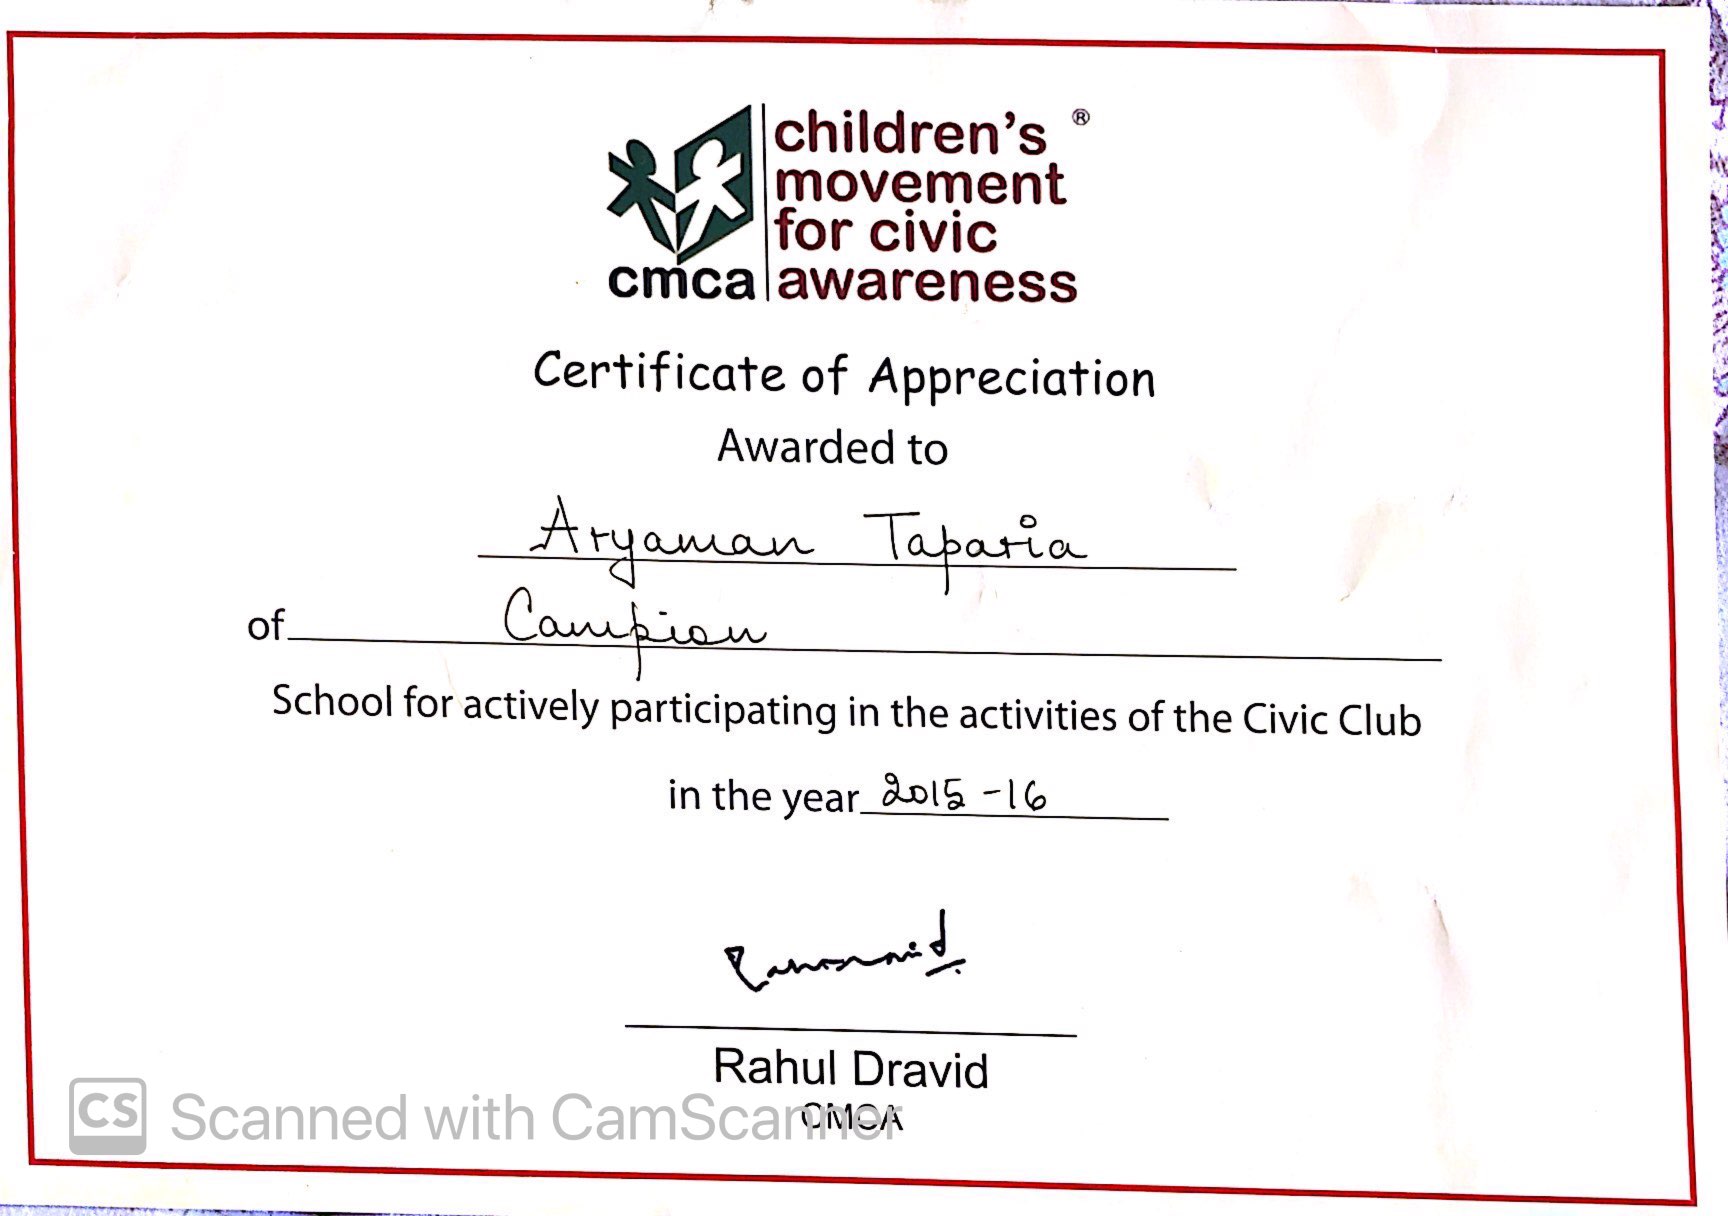 children's ®
movement
for civic
cmca awareness
Certificate of Appreciation
Awarded to
Aryaman Taparia
of Campion
School for actively participating in the activities of the Civic Club
in the year 2015-16
Rahul Dravid
CMCA
CS Scanned with CamScanner